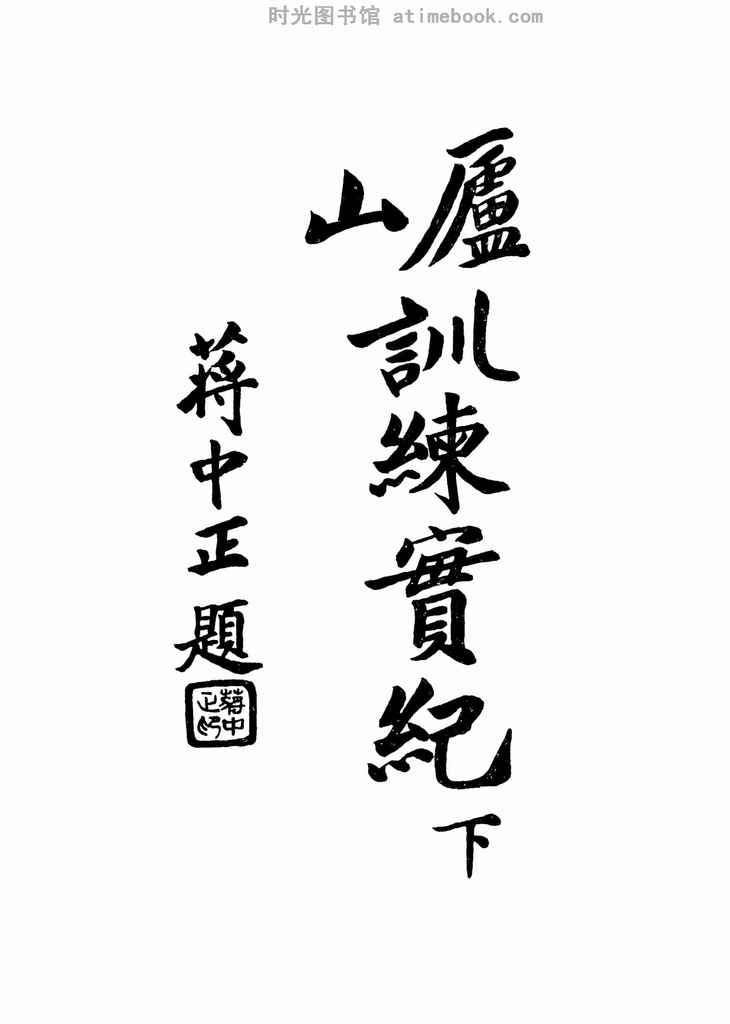 时光图书馆 atimebook.com
廬山訓練實紀 下
蔣中正題
蔣中正印